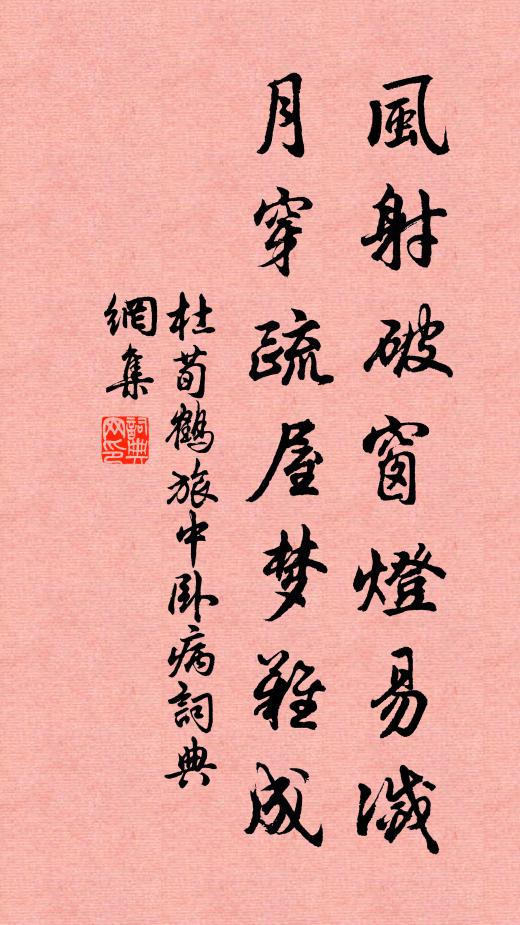 風射破窗燈易滅
月穿疏屋梦難成
杜荀鶴旅中卧病詞典
網集
詞典网印